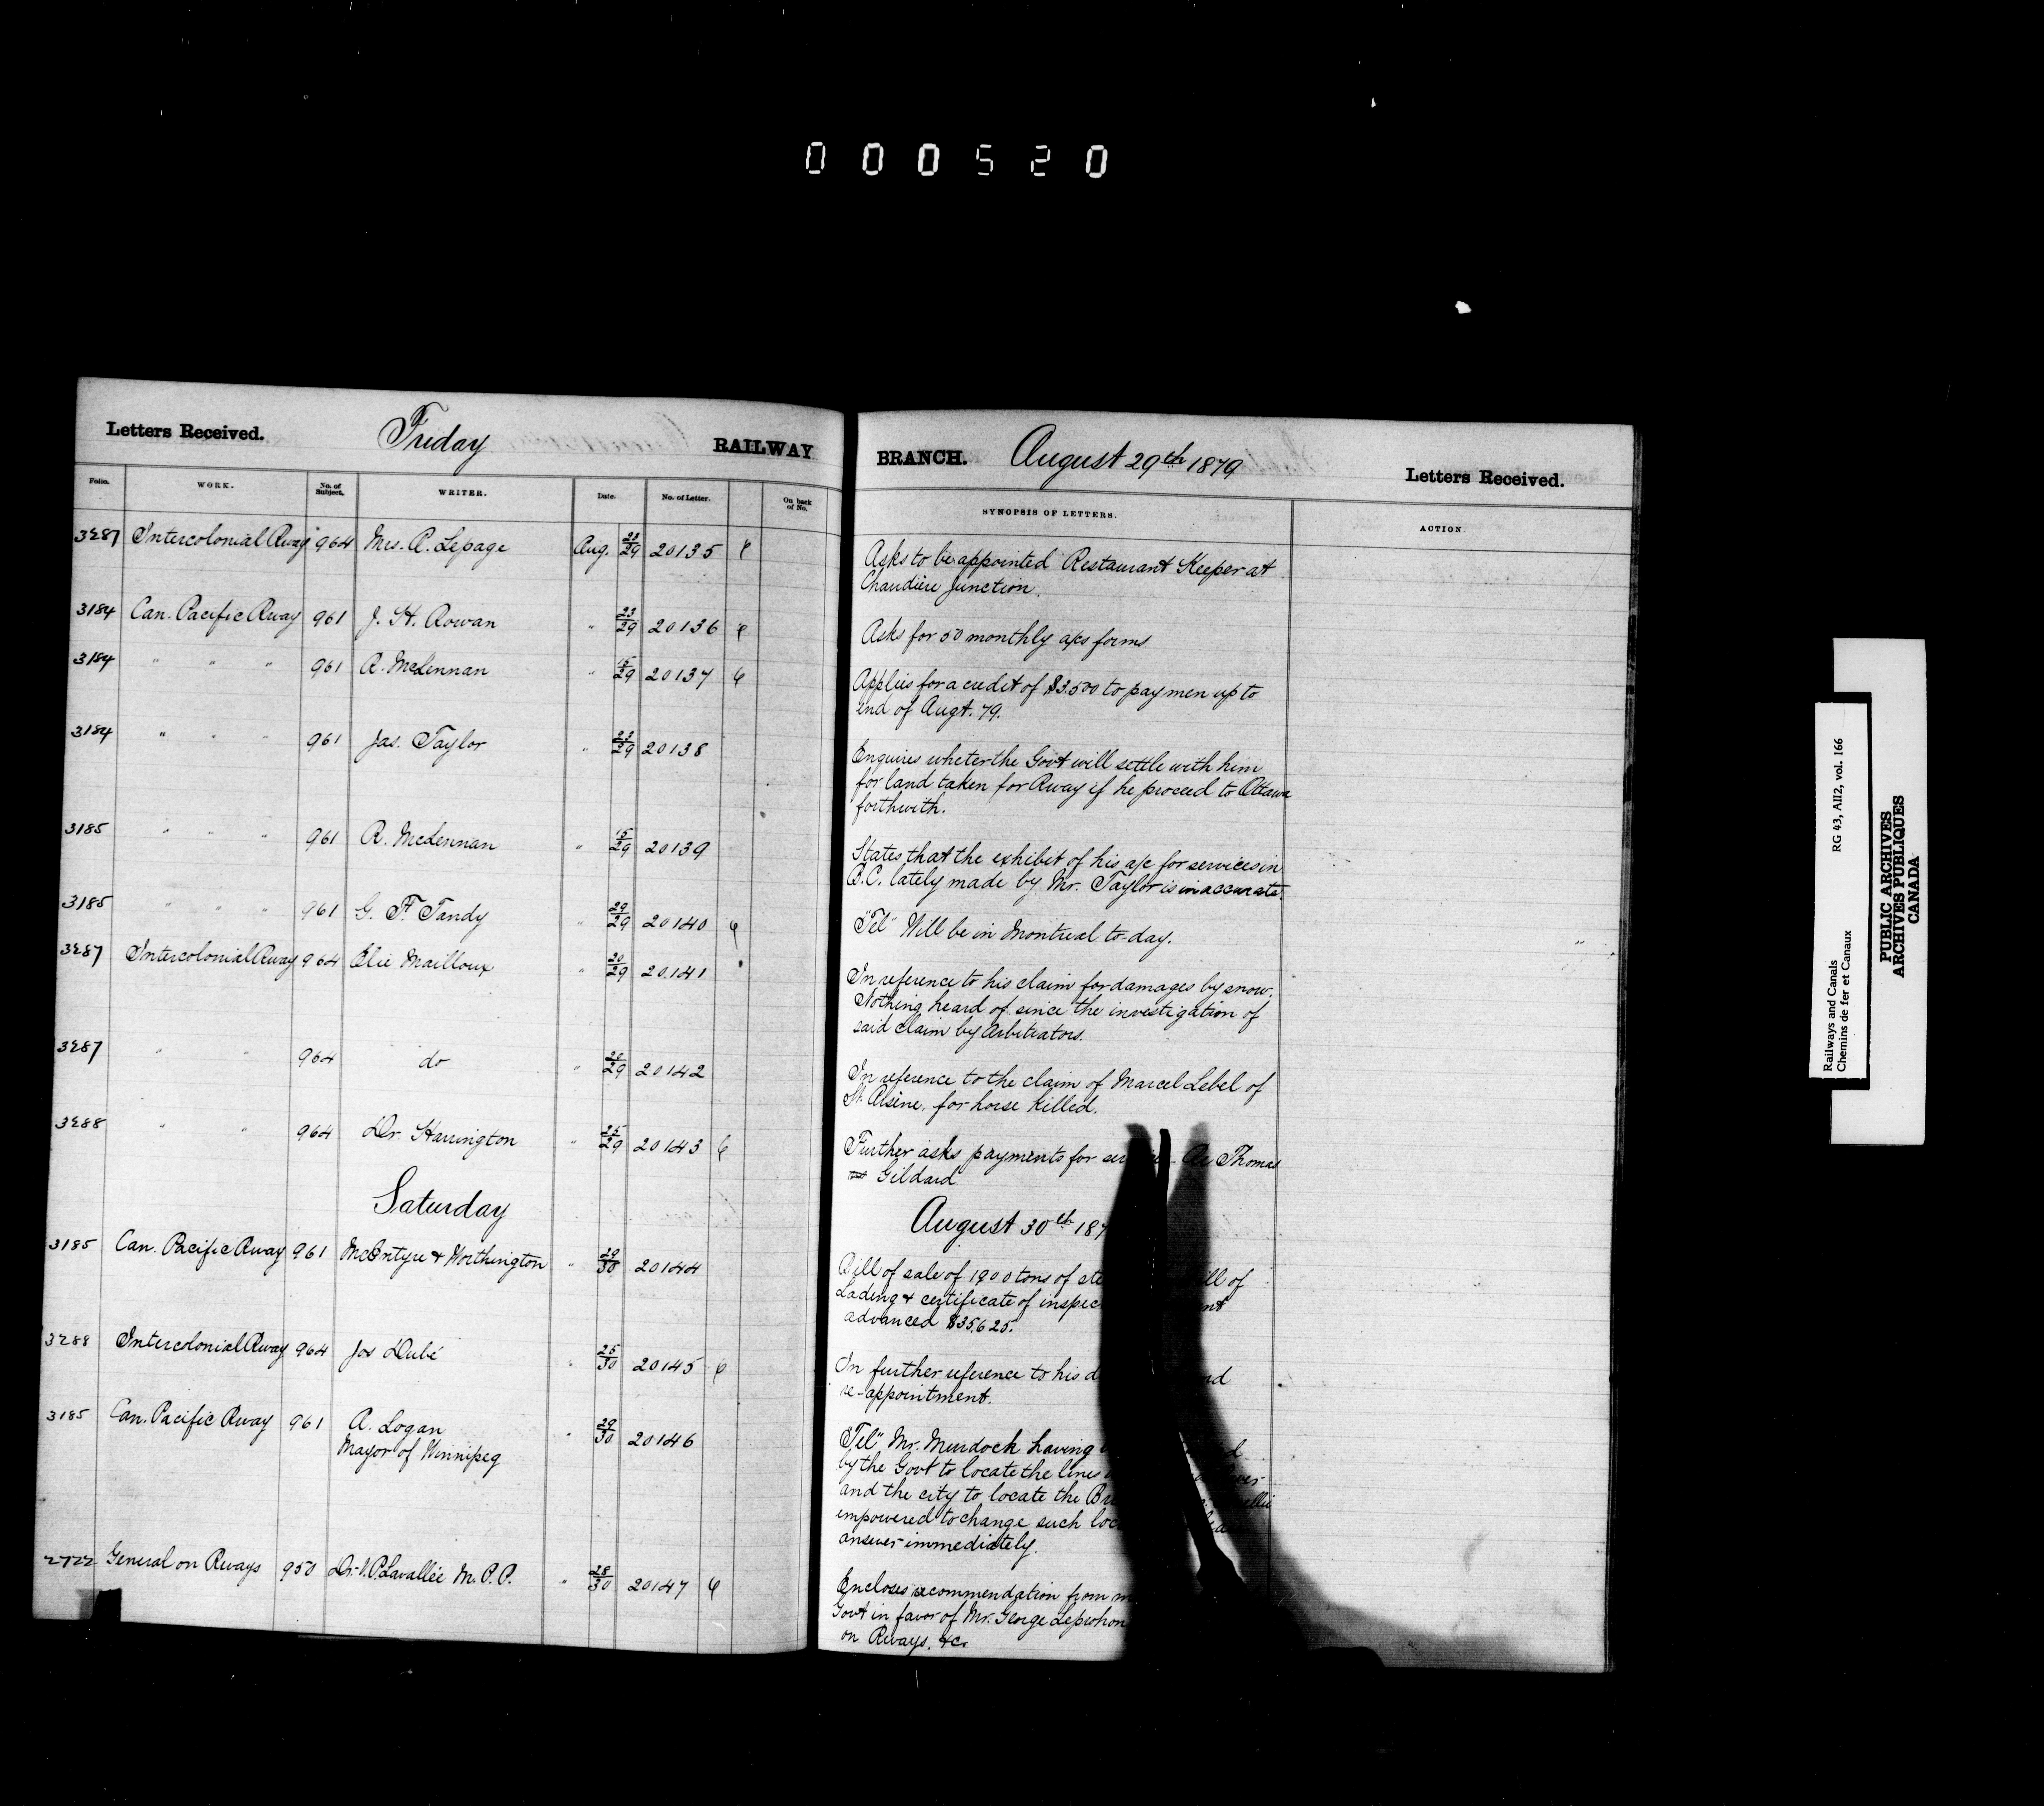 000520
Letters Received. Friday RAILWAY
Folio. WORK. No. of Subject. WRITER. Date. No. of Letter. On back of No.
3287 Intercolonial Rway 964 Mrs. A. Lepage Aug. 28/29 20135
3184 Can. Pacific Rway 961 J. H. Rowan " 23/29 20136
3184 " " " 961 R. McLennan " 15/29 20137
3184 " " " 961 Jas. Taylor " 23/29 20138
3185 " " " 961 R. McLennan " 15/29 20139
3185 " " " 961 G. F. Tandy " 29/29 20140
3287 Intercolonial Rway 964 Elie Mailloux " 20/29 20141
3287 " " 964 do " 20/29 20142
3288 " " 964 Dr. Harrington " 25/29 20143
Saturday
3185 Can. Pacific Rway 961 McIntyre & Worthington " 29/30 20144
3288 Intercolonial Rway 964 Jos Dubé " 25/30 20145
3185 Can. Pacific Rway 961 A. Logan " 29/30 20146
Mayor of Winnipeg
2722 General on Rways 950 Dr. V. P. Lavallée M.P.P. " 28/30 20147
BRANCH. August 29th 1879 Letters Received.
SYNOPSIS OF LETTERS. ACTION.
Asks to be appointed Restaurant Keeper at
Chaudière Junction.
Asks for 50 monthly a/cs forms
Applies for a credit of $3.500 to pay men up to
end of Augt. 79.
Enquires wheter the Govt will settle with him
for land taken for Rway if he proceed to Ottawa
forthwith.
States that the exhibit of his a/c for services in
B.C. lately made by Mr. Taylor is inaccurate.
"Tel" Will be in Montreal to-day.
In reference to his claim for damages by snow.
Nothing heard of since the investigation of
said claim by Arbitrators.
In reference to the claim of Marcel Lebel of
St. Arsène, for horse killed.
Further asks payments for Thomas
Gildard
August 30th 187
Bill of sale of 1900 tons of of
Lading & certificate of
advanced $35,625.
In further reference to his
re-appointment.
"Tel" Mr. Murdock having
by the Govt to locate the lines
and the city to locate the
empowered to change such
answer immediately.
Encloses recommendation from
Govt in favor of Mr. George Leprohon
on Rways. &c.
Railways and Canals RG 43, AII2, vol. 166
Chemins de fer et Canaux
PUBLIC ARCHIVES
ARCHIVES PUBLIQUES
CANADA